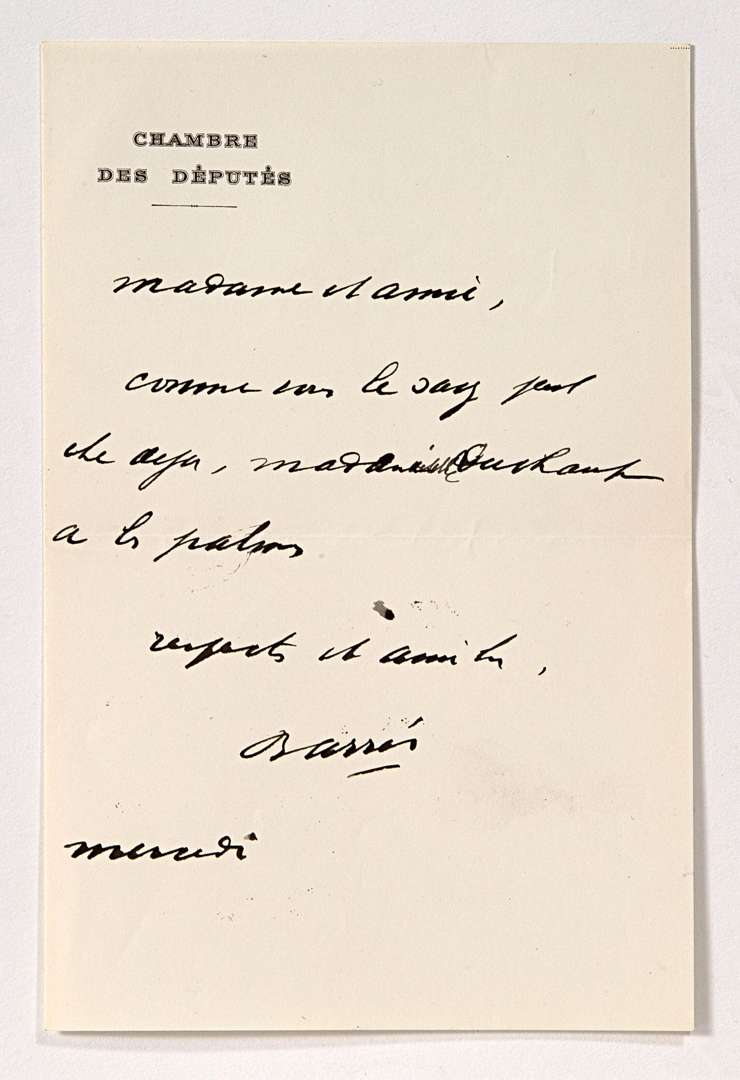 CHAMBRE
DES DÉPUTÉS
madame et amie,
comme vous le savez peut
être déjà, madame
a les palmes
respects et amitiés,
Barrès
mercredi